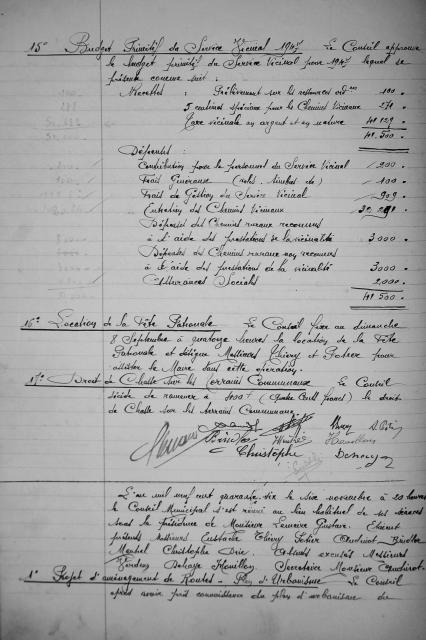 15° Budget Primitif du Service Vicinal 1947 Le Conseil approuve
le budget primitif du Service Vicinal pour 1947 lequel se
présente comme suit :
Recettes : Prélèvement sur les ressources ord res 100 .
5 centimes spéciaux pour les Chemins Vicinaux 271 .
Taxe vicinale en argent et en nature 41 129 .
41.500 .
Dépenses :
Contribution pour le personnel du Service Vicinal 200 .
Frais Généraux 100 .
Frais de Gestion du Service Vicinal 909 .
Entretien des Chemins Vicinaux
Dépenses des Chemins ruraux reconnus
à l'aide des prestations de la vicinalité 3.000 .
Dépenses des Chemins ruraux non reconnus
à l'aide des prestations de la vicinalité 3000 .
Assurances Sociales 2,000 .
41 500 .
16° Location de la Fête Patronale Le Conseil fixe au dimanche
8 Septembre à quatorze heures la location de la Fête
Patronale et délègue Messieurs Thiéry et Potier pour
assister le Maire dans cette opération.
17° Droit de Chasse sur les Terrains Communaux Le Conseil
décide de ramener à 400 f (Quatre Cent francs) le droit
de Chasse sur les terrains Communaux.
Christophe
L'an mil neuf cent quarante six le six novembre à 20 heures
le Conseil Municipal s'est réuni au lieu habituel de ses séances
sous la présidence de Monsieur Lemaire Gustave. Etaient
présents Messieurs Eustache Thiéry Potier
Christophe Absents excusés Messieurs
Secrétaire Monsieur
1° Projet d'aménagement de Routes - Plan d'Urbanisme Le Conseil
après avoir pris connaissance du plan d'urbanisme de